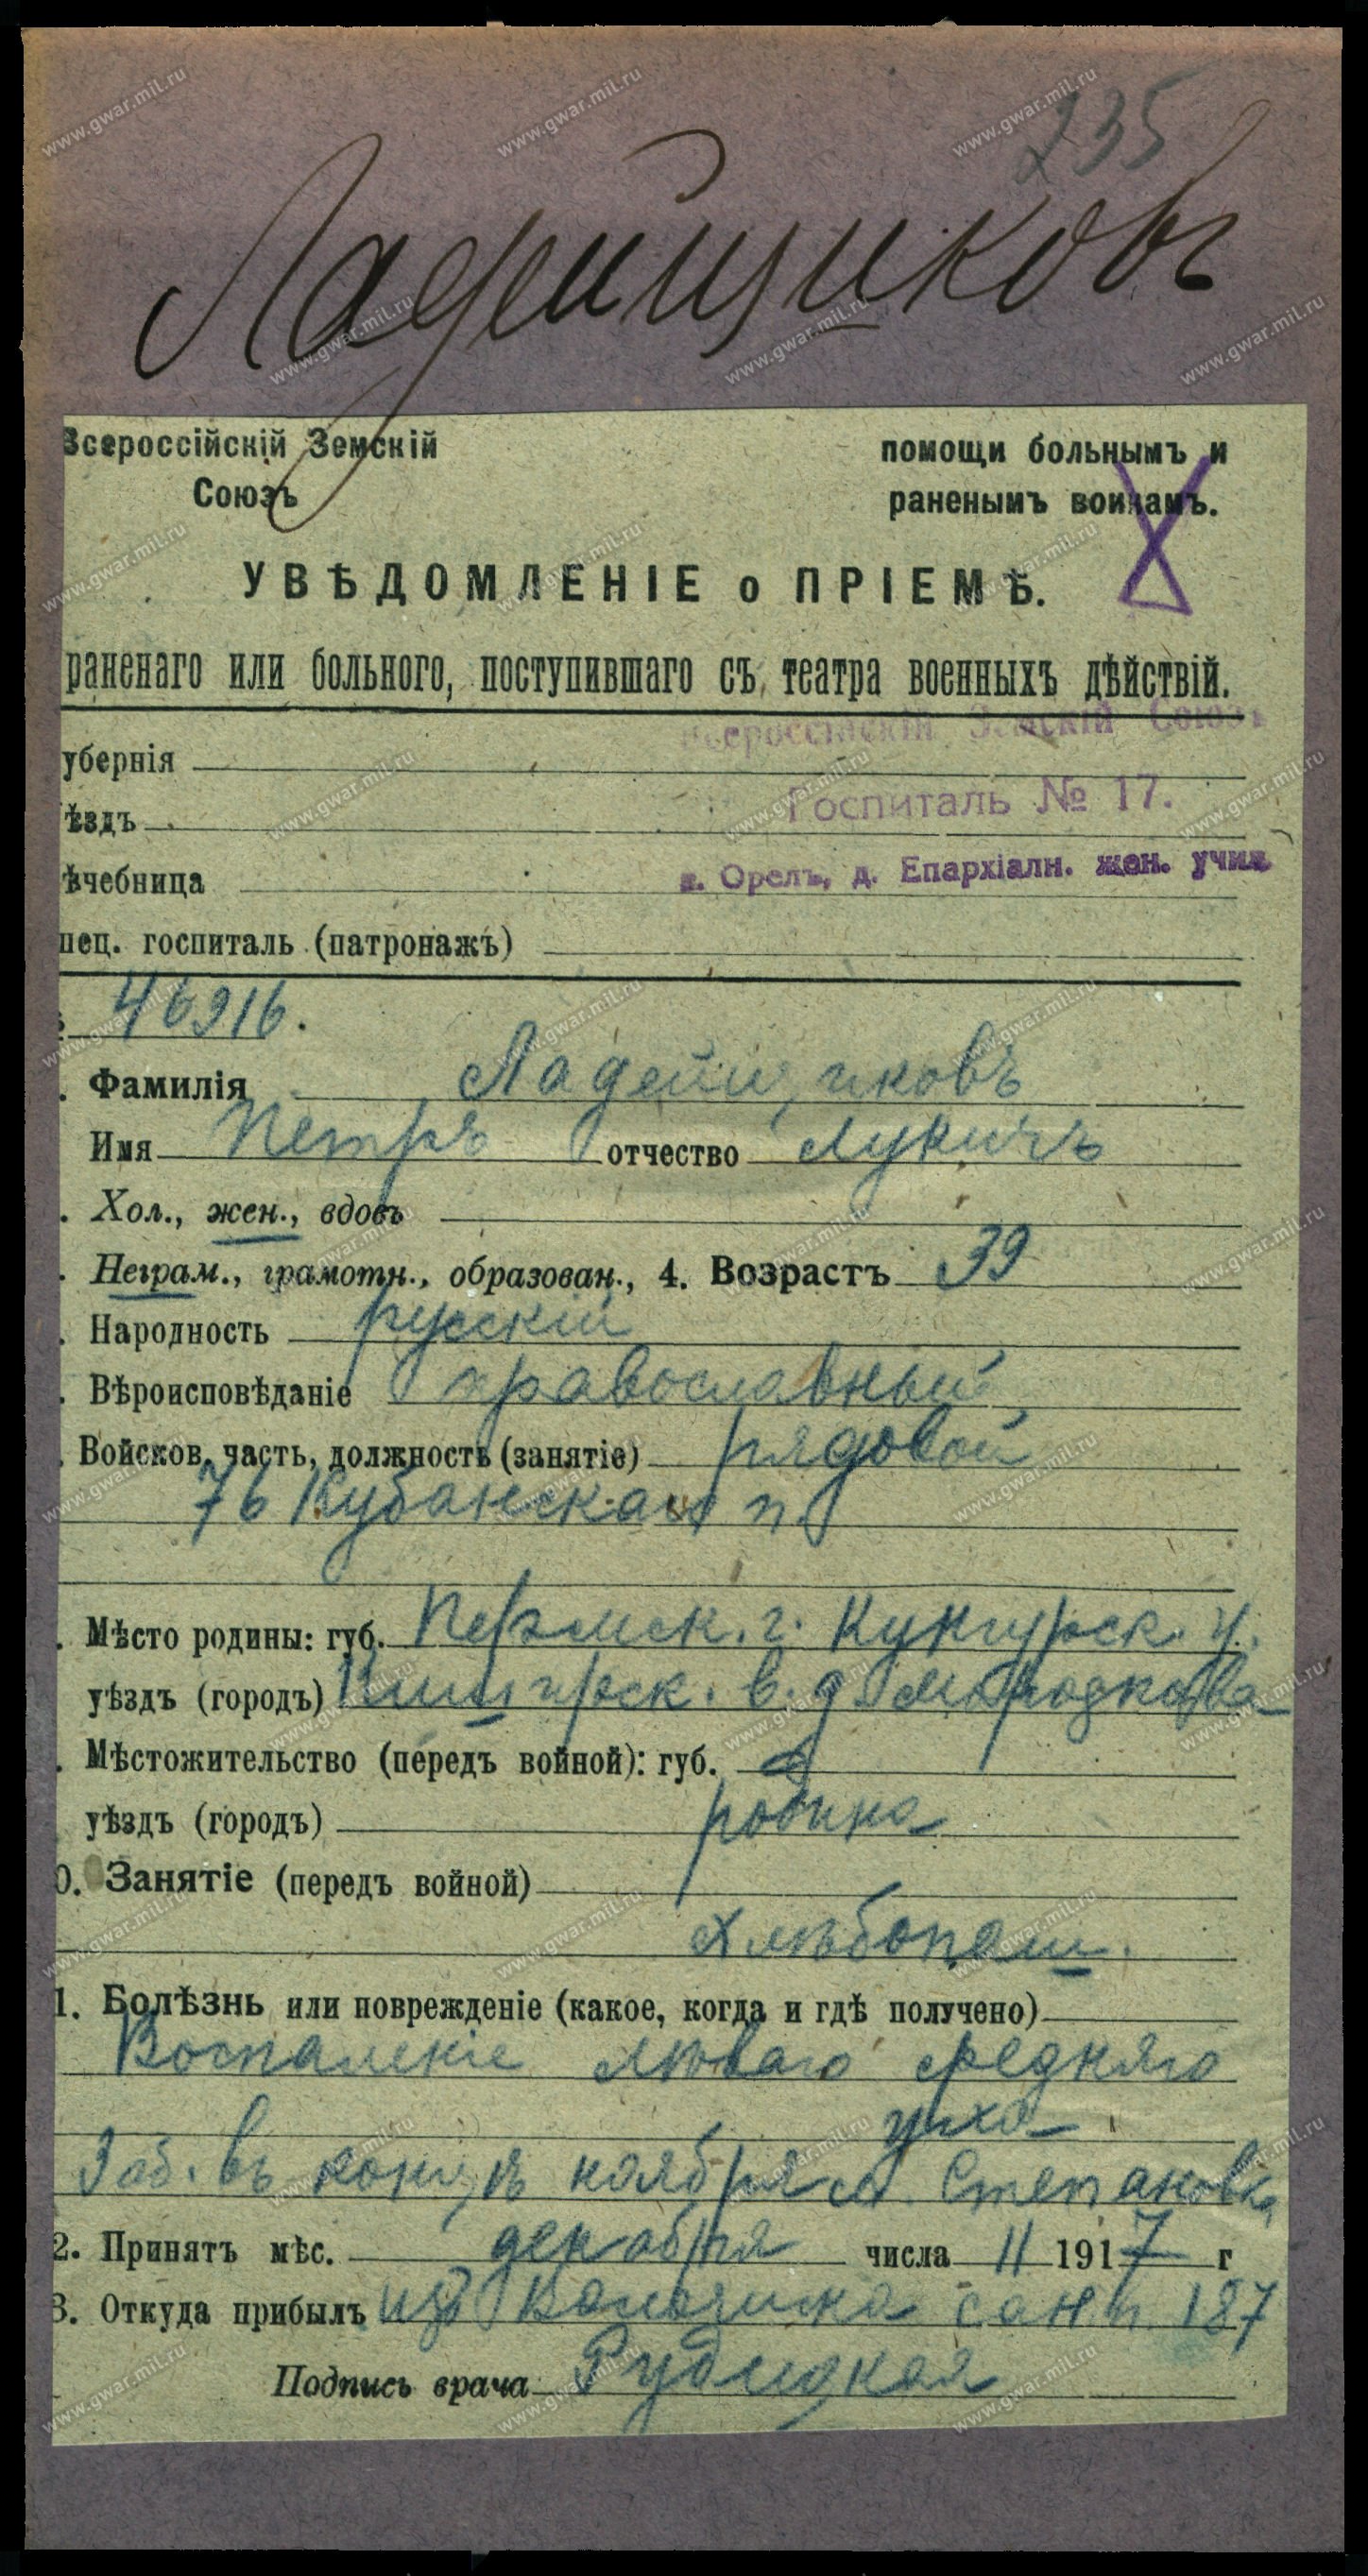 235
Ладейщиковъ
Всероссійскій Земскій
Союзъ
помощи больнымъ и
раненымъ воинамъ.
УВѢДОМЛЕНІЕ о ПРІЕМѢ.
раненаго или больного, поступившаго съ театра военныхъ дѣйствій.
Всероссійскій Земскій Союзъ
убернія
Госпиталь № 17.
ѣздъ
г. Орелъ, д. Епархіалн. жен. учил
ѣчебница
пец. госпиталь (патронажъ)
46916.
. Фамилія Ладейщиковъ
Имя Петръ отчество Лукичъ
. Хол., жен., вдовъ
. Неграм., грамотн., образован., 4. Возрастъ 39
. Народность русскій
. Вѣроисповѣданіе православный
. Войсков. часть, должность (занятіе) рядовой
76 Кубанскаго п.
. Мѣсто родины: губ. Пермск. г. Кунгурск. у.
уѣздъ (городъ) в. д.
. Мѣстожительство (передъ войной): губ.
уѣздъ (городъ) родина
0. Занятіе (передъ войной)
Хлѣбопаш.
1. Болѣзнь или поврежденіе (какое, когда и гдѣ получено)
Воспаленіе лѣваго средняго
уха
Заб. въ концѣ ноября м. Степановка
2. Принятъ мѣс. декабря числа 11 1917 г
3. Откуда прибылъ изъ сан п. 187
Подпись врача Рудницкая